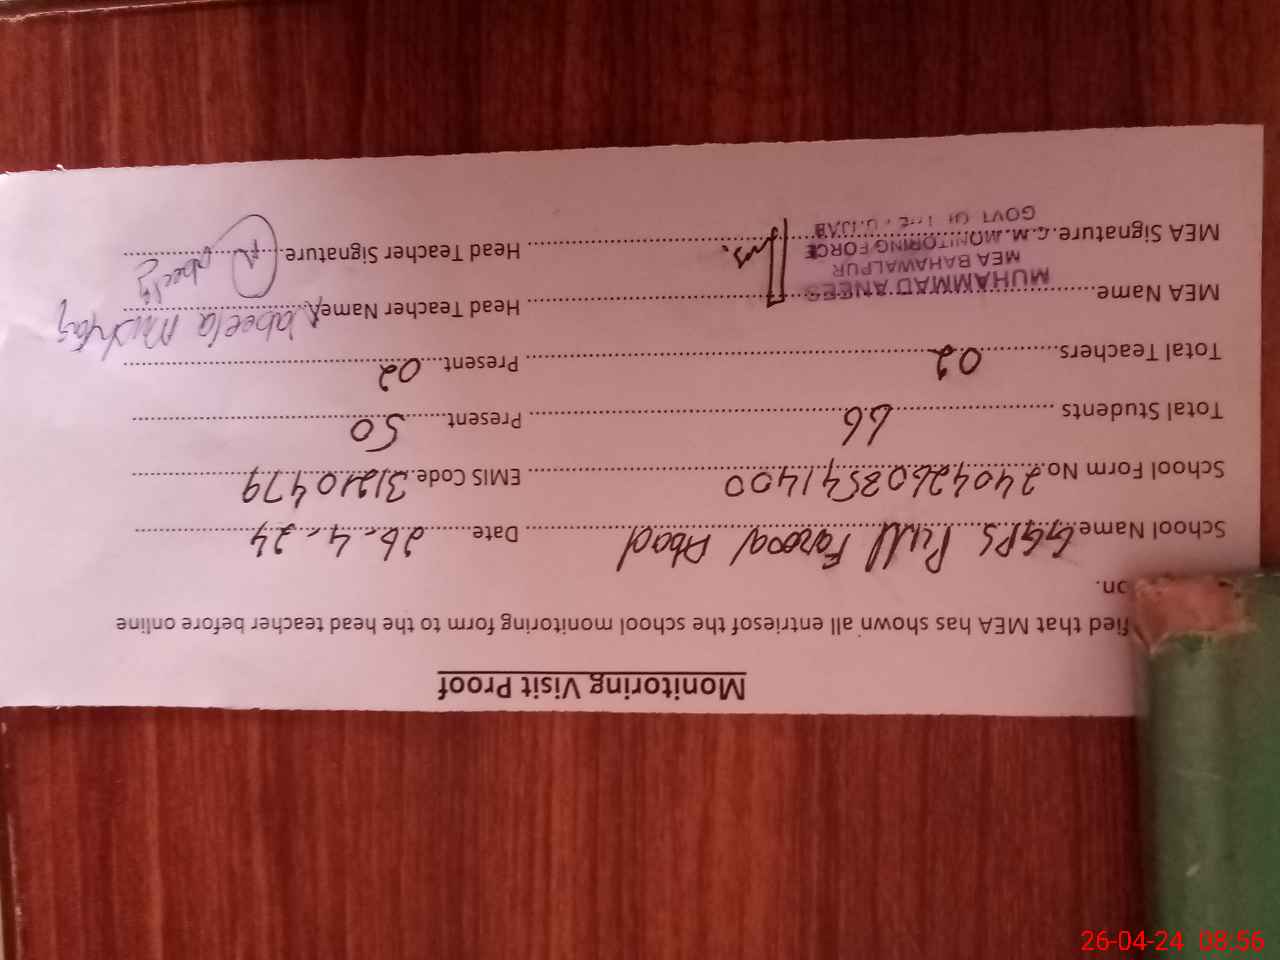 Monitoring Visit Proof
fied that MEA has shown all entriesof the school monitoring form to the head teacher before online
on.
School Name GGPS Pull Farooq Abad Date 26.4.24
School Form No. 24042608541400 EMIS Code 31210479
Total Students 66 Present 50
Total Teachers 02 Present 02
MEA Name Head Teacher Name Nabeela Mushtaq
MUHAMMAD ANEES
MEA BAHAWALPUR
C.M. MONITORING FORCE
GOVT OF THE PUNJAB
MEA Signature Head Teacher Signature
26-04-24 08:56